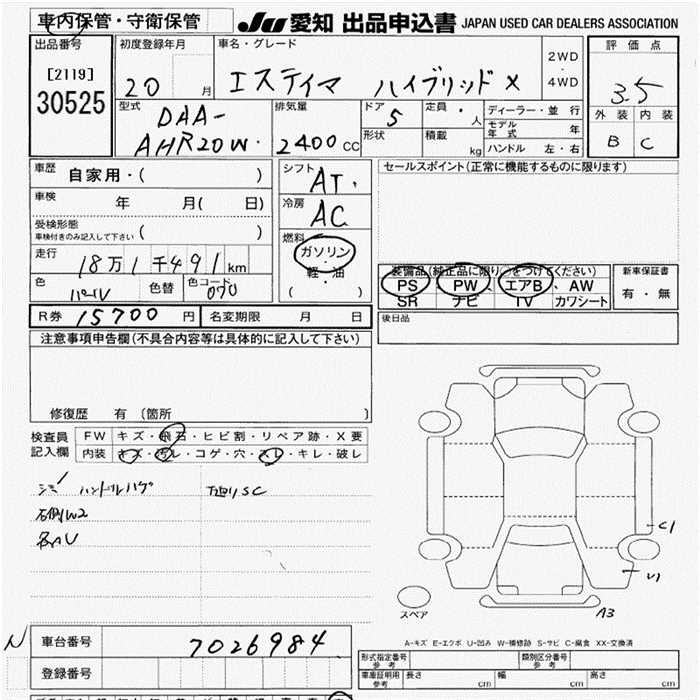 車内保管・守衛保管
JU 愛知 出品申込書 JAPAN USED CAR DEALERS ASSOCIATION
出品番号 初度登録年月 車名・グレード 評価点
[2119] 2WD
30525 20 月 エスティマ ハイブリッド X ・ 3.5
4WD
型式 排気量 ドア 定員 ディーラー・並行 外装 内装
DAA- 5 ・ 人 モデル年式 年 B C
AHR20W 2400 CC 形状 積載 kg ハンドル 左・右
車歴 自家用・( ) シフト AT セールスポイント(正常に機能するものに限ります)
車検 年 月( 日) 冷房 AC
受検形態 ( ) 燃料
車検付きのみ記入して下さい ガソリン
走行 18万1千491km 軽・油 装備品(純正品に限り○をつけてください) 新車保証書
色 パール 色替 色コード 070 ( ) PS PW エアB、AW 有・無
SR ナビ TV カワシート
R券 15700 円 名変期限 月 日 後日品
注意事項申告欄(不具合内容等は具体的に記入して下さい)
修復歴 有 (箇所 )
検査員 FW キズ・飛石・ヒビ割・リペア跡・X要
記入欄 内装 キズ・汚レ・コゲ・穴・スレ・キレ・破レ
シミ ハンドルハゲ 下廻りSC
右側W2
各AU
C1
U1
スペア A3
A-キズ E-エクボ U-凹み W-補修跡 S-サビ C-腐食 XX-交換済
N 車台番号 7026984 型式指定番号 参考 類別区分番号 参考
登録番号 車庫証明用 参考 長さ cm 幅 cm 高さ cm